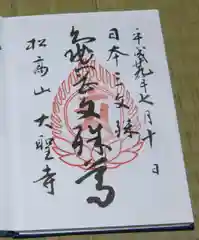 平成廿九年七月十日
日本三文殊
亀岡文殊尊
松高山 大聖寺